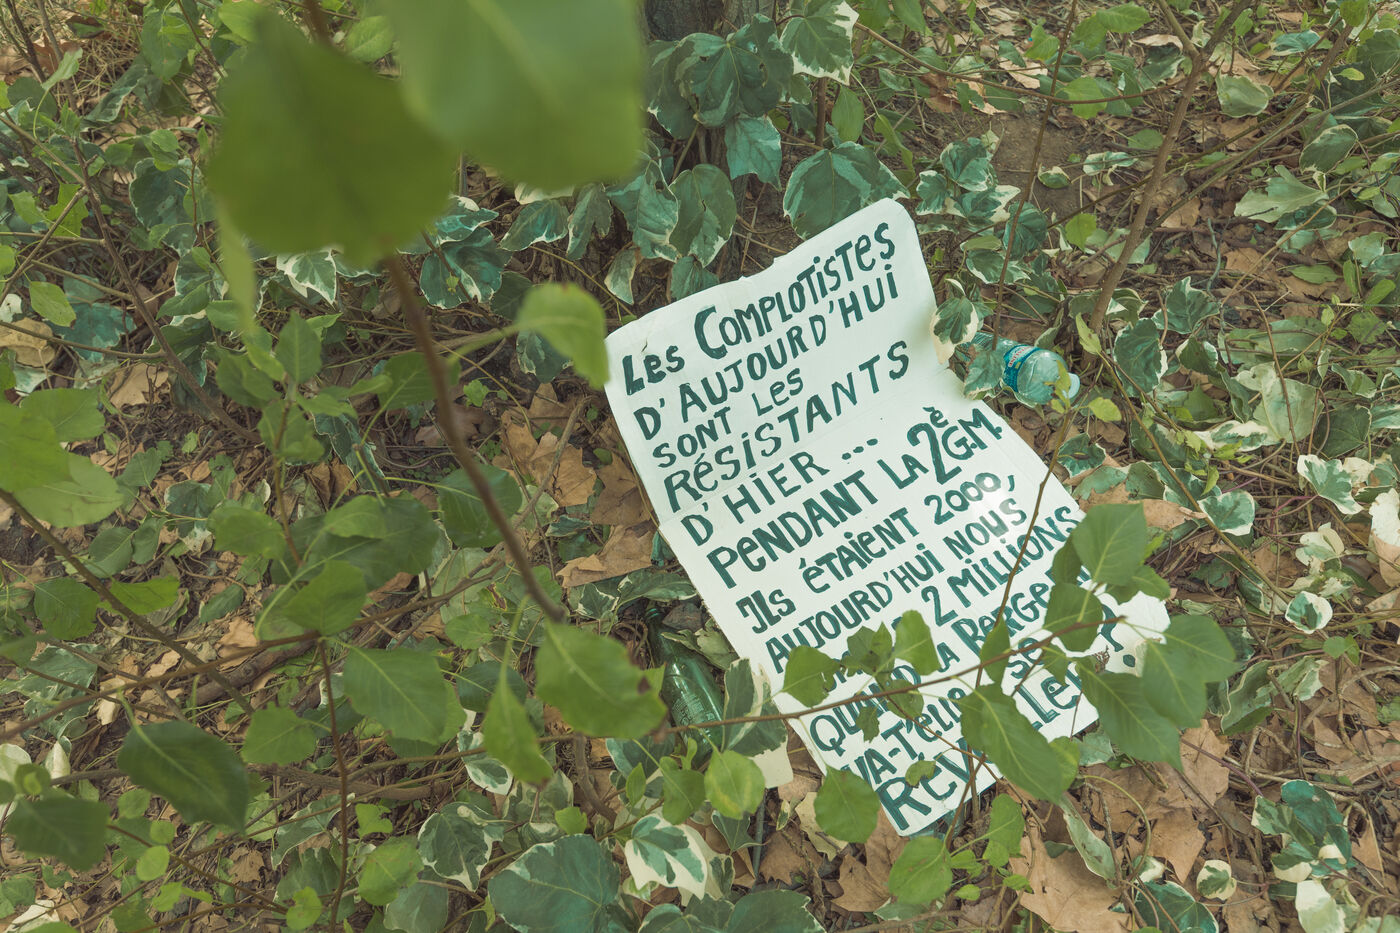 Les Complotistes
d'aujourd'hui
sont les
Résistants
d'hier...
Pendant la 2è G.M.
Ils étaient 2000,
aujourd'hui nous
2 millions
Quand la Berge
va-t'elle se
Réveiller?